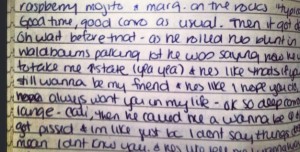 raspberry mojito & marg. on the rocks
Good time, good convo as usual. Then it got
Oh wait before that - as he rolled his blunt in
waldbaums parking lot he was saying how he
to take me 4state (yea yea) & he's like what's if you
still wanna be my friend & he's like I hope you do,
always want you in my life - ok so deep convo
then he called me a wanna be
got pissed & im like just bc I dont say things
mean I dont know you, & he's like